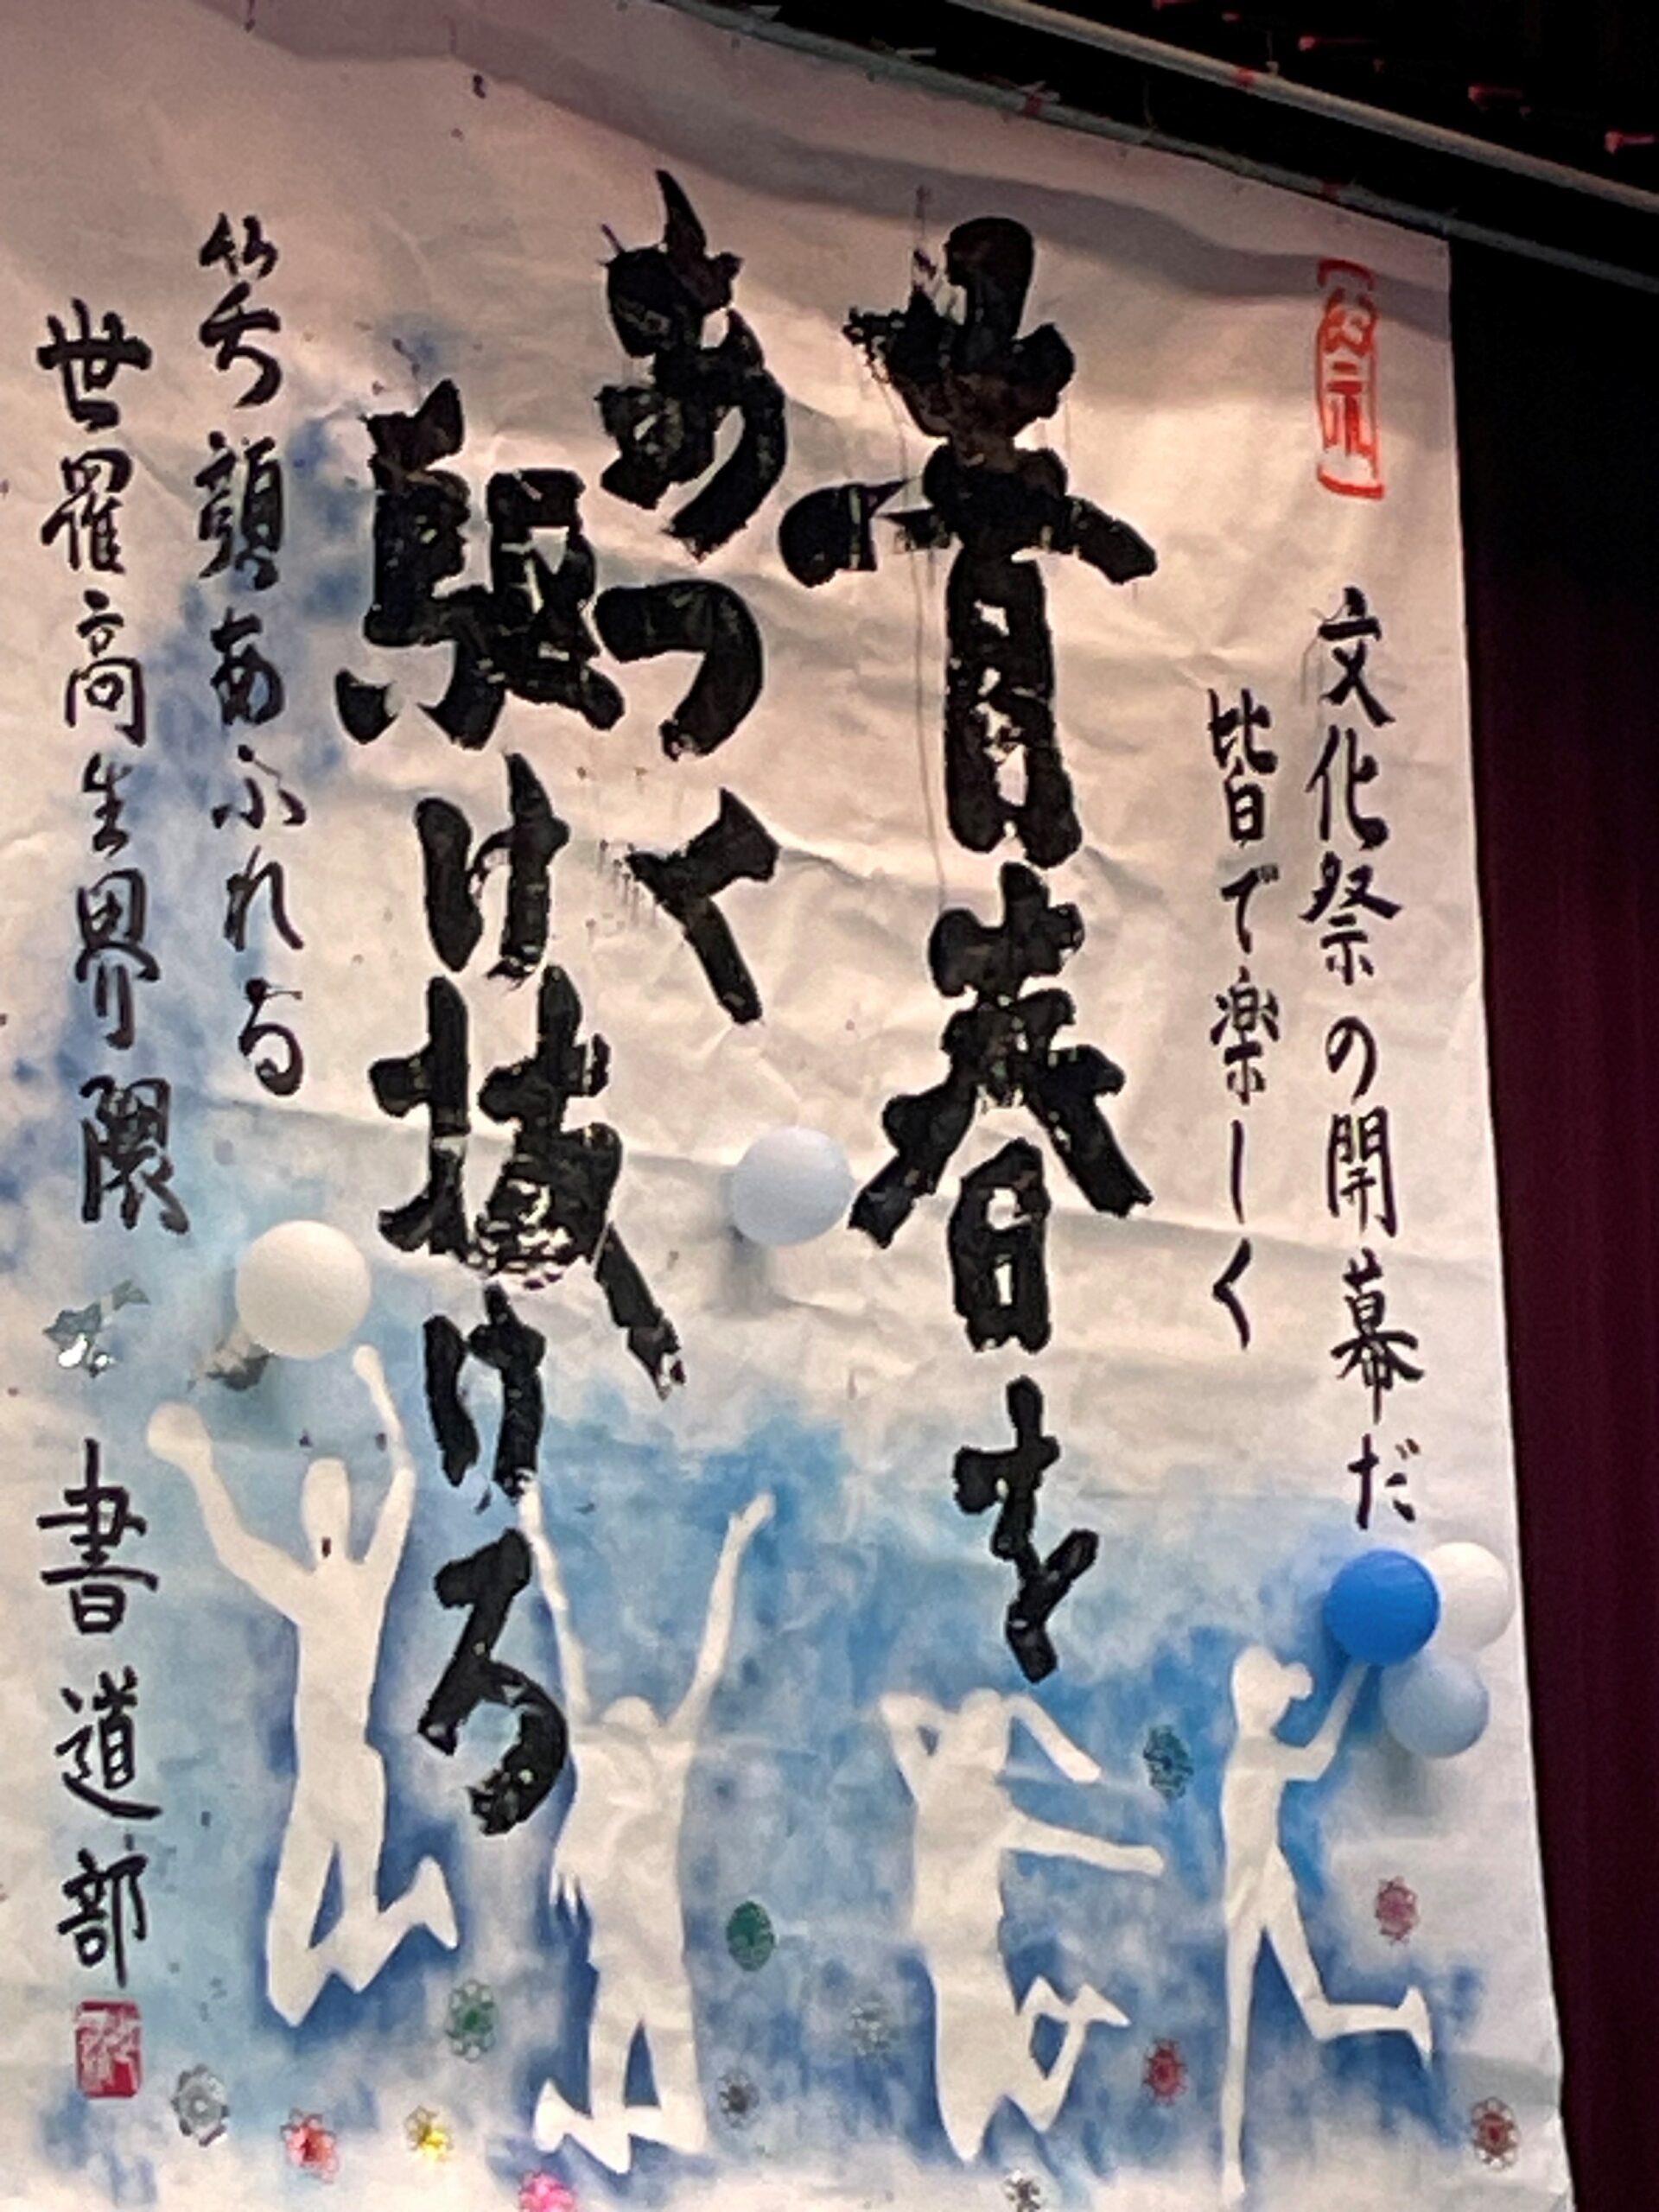 文化祭の開幕だ
皆で楽しく
青春を
あつく
駆け抜けろ
笑顔あふれる
世羅高生界隈 書道部